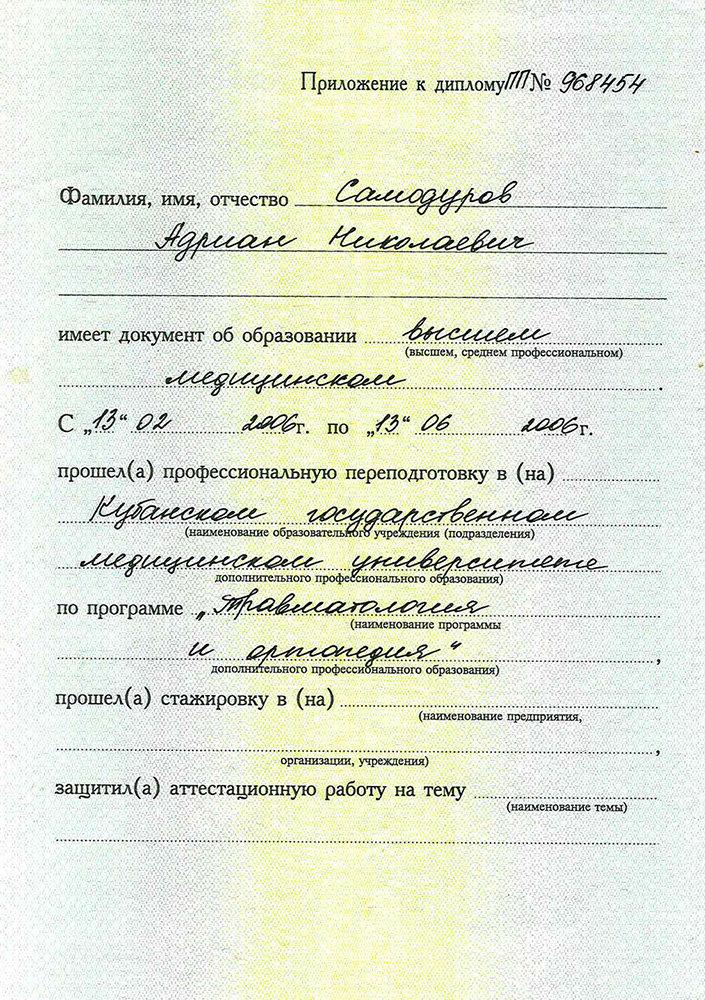 Приложение к диплому ПП № 968454
Фамилия, имя, отчество Самодуров
Адриан Николаевич
имеет документ об образовании высшем
(высшем, среднем профессиональном)
медицинском.
С „13“ 02 2006г. по „13“ 06 2006г.
прошел(а) профессиональную переподготовку в (на)
Кубанском государственном
(наименование образовательного учреждения (подразделения)
медицинском университете
дополнительного профессионального образования)
по программе „Травматология
(наименование программы
и ортопедия“,
дополнительного профессионального образования)
прошел(а) стажировку в (на)
(наименование предприятия,
,
организации, учреждения)
защитил(а) аттестационную работу на тему
(наименование темы)